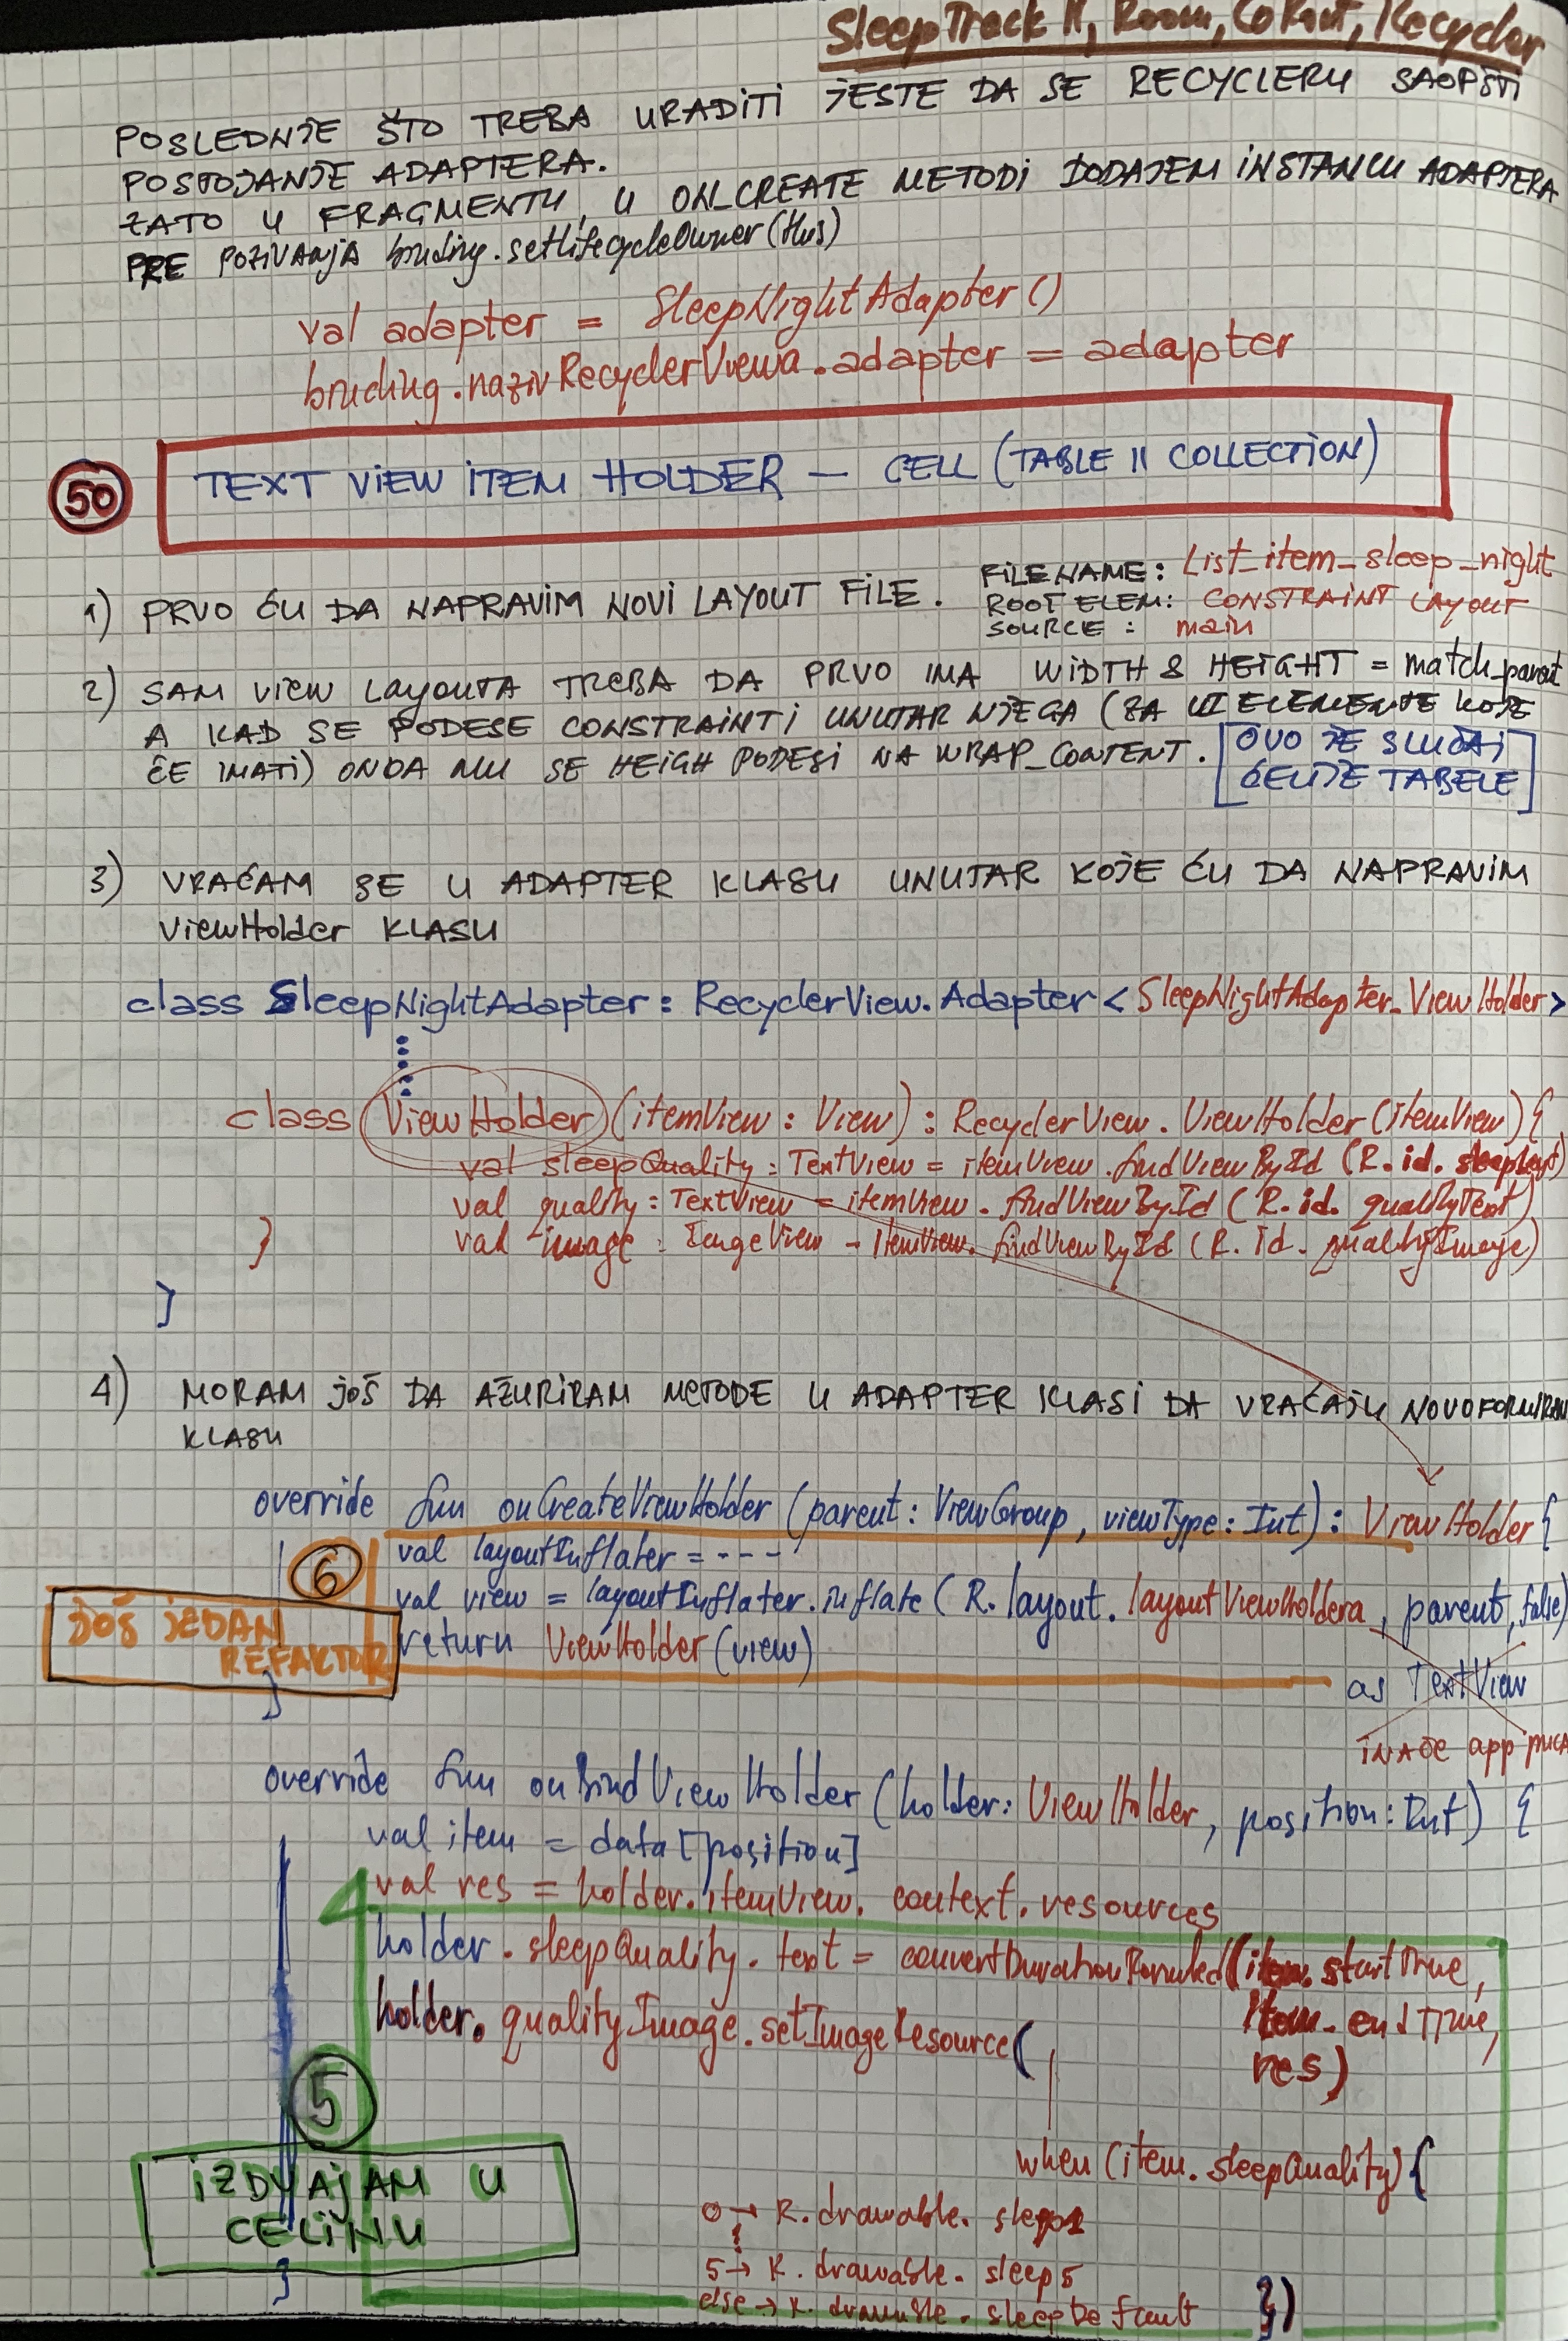 SleepTrack II, Room, CoRout, Recycler
POSLEDNJE ŠTO TREBA URADITI JESTE DA SE RECYCLERU SAOPŠTI
POSTOJANJE ADAPTERA.
ZATO U FRAGMENTU, U ON_CREATE METODI DODAJEM INSTANCU ADAPTERA
PRE POZIVANJA binding.setLifecycleOwner(this)
val adapter = SleepNightAdapter()
binding.nazivRecyclerViewa.adapter = adapter
50
TEXT VIEW ITEM HOLDER – CELL (TABLE II COLLECTION)
1) PRVO ĆU DA NAPRAVIM NOVI LAYOUT FILE.
FILENAME: List_item_sleep_night
ROOT ELEM: CONSTRAINT LAYOUT
SOURCE: main
2) SAM VIEW LAYOUTA TREBA DA PRVO IMA WIDTH & HEIGHT = match_parent
A KAD SE PODESE CONSTRAINTI UNUTAR NJEGA (ZA UI ELEMENTE KOJE
ĆE IMATI) ONDA MU SE HEIGH PODESI NA WRAP_CONTENT.
[OVO JE SLUČAJ
ĆELIJE TABELE]
3) VRAĆAM SE U ADAPTER KLASU UNUTAR KOJE ĆU DA NAPRAVIM
ViewHolder KLASU
class SleepNightAdapter: RecyclerView.Adapter<SleepNightAdapter.ViewHolder>
class ViewHolder (itemView: View): RecyclerView.ViewHolder(itemView) {
val sleepQuality: TextView = itemView.findViewById (R.id.
val quality: TextView = itemView.findViewById (R.id.qualityText)
val image: ImageView = itemView.findViewById (R.id.qualityImage)
}
}
4) MORAM JOŠ DA AŽURIRAM METODE U ADAPTER KLASI DA VRAĆAJU
KLASU
override fun onCreateViewHolder (parent: ViewGroup, viewType: Int): ViewHolder {
6
val layoutInflater = ----
val view = layoutInflater.inflate (R.layout.layoutViewHoldera, parent, false)
JOŠ JEDAN
REFAKTOR
return ViewHolder (view)
as TextView
}
INAČE app puca
override fun onBindViewHolder (holder: ViewHolder, position: Int) {
val item = data [position]
val res = holder.itemView.context.resources
holder.sleepQuality.text = (item.startTime,
item.endTime,
res)
holder.qualityImage.setImageResource(
5
when (item.sleepQuality) {
IZDVAJAM U
CELINU
0 → R.drawable.
5 → R.drawable.sleep5
else → R.drawable.sleepDefault })
}